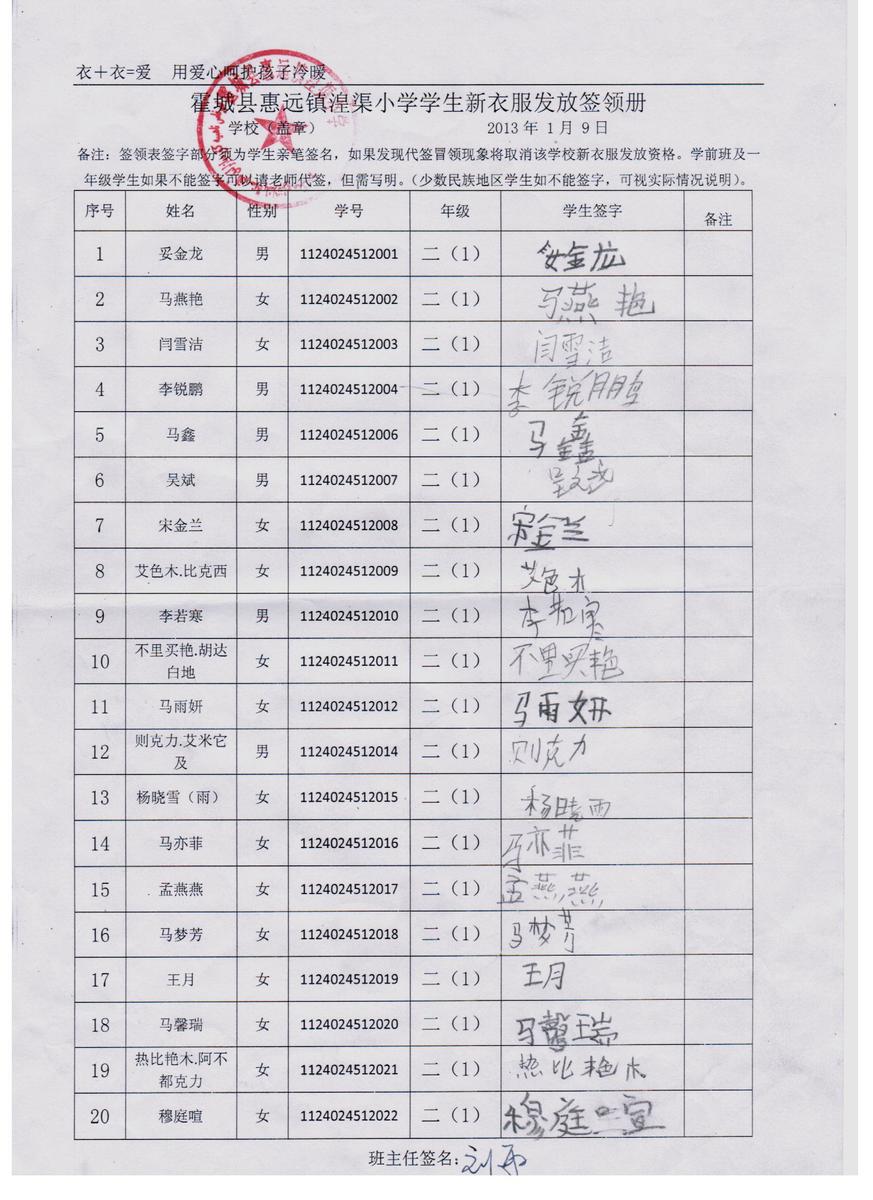 衣＋衣=爱 用爱心呵护孩子冷暖
霍城县惠远镇湟渠小学学生新衣服发放签领册
学校（盖章） 2013 年 1 月 9 日
备注：签领表签字部分须为学生亲笔签名，如果发现代签冒领现象将取消该学校新衣服发放资格。学前班及一
年级学生如果不能签字可以请老师代签，但需写明。（少数民族地区学生如不能签字，可视实际情况说明）。
序号 姓名 性别 学号 年级 学生签字 备注
1 妥金龙 男 1124024512001 二（1） 妥金龙
2 马燕艳 女 1124024512002 二（1） 马燕艳
3 闫雪洁 女 1124024512003 二（1） 闫雪洁
4 李锐鹏 男 1124024512004 二（1） 李锐鹏
5 马鑫 男 1124024512006 二（1） 马鑫
6 吴斌 男 1124024512007 二（1） 吴斌
7 宋金兰 女 1124024512008 二（1） 宋金兰
8 艾色木.比克西 女 1124024512009 二（1） 艾色木
9 李若寒 男 1124024512010 二（1） 李若寒
10 不里买艳.胡达
白地 女 1124024512011 二（1） 不里买艳
11 马雨妍 女 1124024512012 二（1） 马雨妍
12 则克力.艾米它
及 男 1124024512014 二（1） 则克力
13 杨晓雪（雨） 女 1124024512015 二（1） 杨晓雨
14 马亦菲 女 1124024512016 二（1） 马亦菲
15 孟燕燕 女 1124024512017 二（1） 孟燕燕
16 马梦芳 女 1124024512018 二（1） 马梦芳
17 王月 女 1124024512019 二（1） 王月
18 马馨瑞 女 1124024512020 二（1） 马馨瑞
19 热比艳木.阿不
都克力 女 1124024512021 二（1） 热比艳木
20 穆庭喧 女 1124024512022 二（1） 穆庭喧
班主任签名：刘